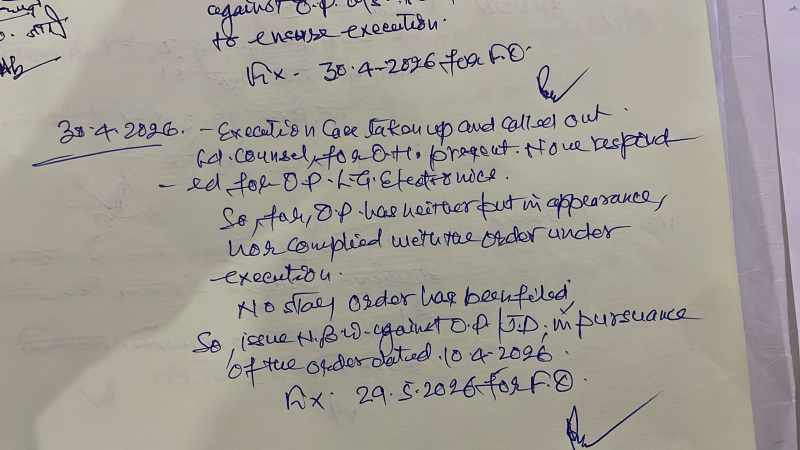 against O.P.
to ensure execution.
Fix - 30.4-2026, for F.O.
30.4.2026. - Execution Case taken up and called out.
Ld. Counsel, for D.H. present. None respond
- ed, for O.P. L.G. Electronics.
So, far, O.P. has neither put in appearance,
nor complied with the order under
execution.
No stay order has been filed,
So, issue N.B.W. against O.P/J.D. in pursuance
of the order dated. 10.4-2026.
Fix. 29.5.2026 for F.O.